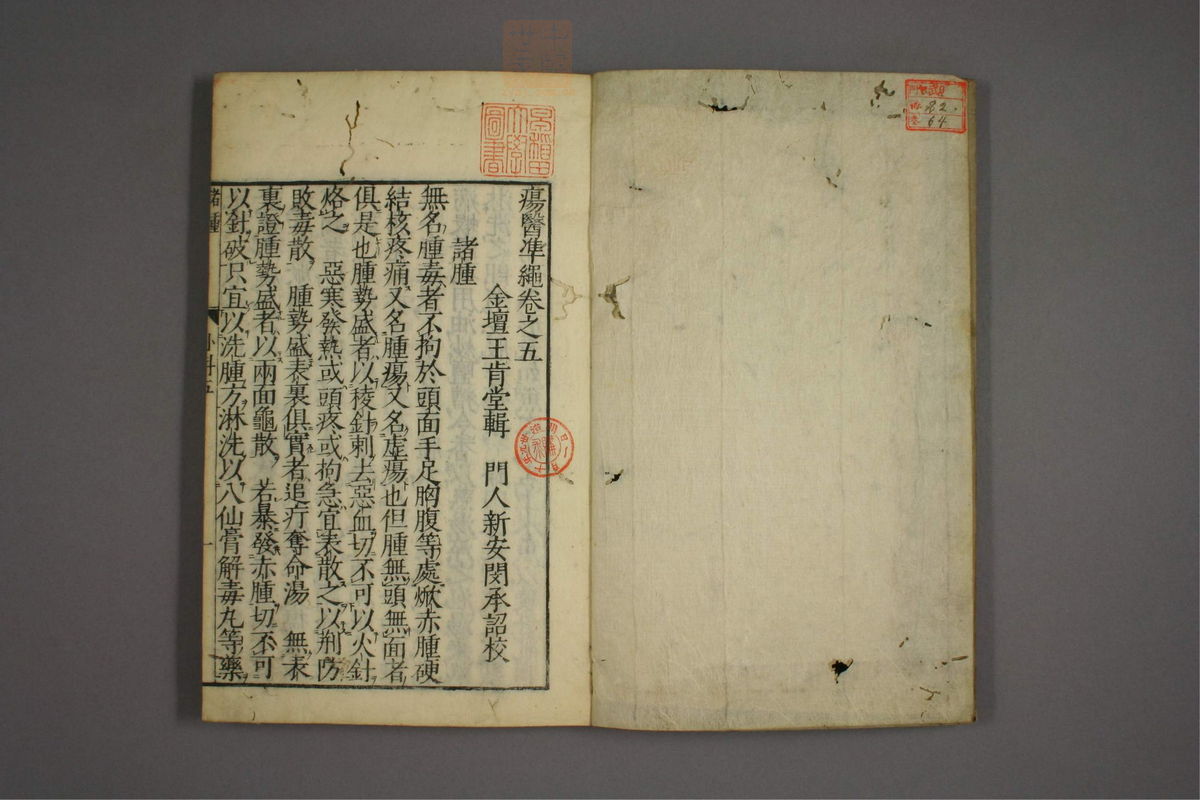 瘍醫準繩卷之五
金壇王肯堂輯　門人新安閔承詔校
諸腫
無名腫毒者不拘於頭面手足胸腹等處焮赤腫硬
結核疼痛又名腫瘍又名虛瘍也但腫無頭無面者
俱是也腫勢盛者以稜針刺去惡血切不可以火針
烙之　惡寒發熱或頭疼或拘急宜表散之以荊防
敗毒散　腫勢盛表裏俱實者追疔奪命湯　無表
裏證腫勢盛者以兩面龜散　若暴發赤腫切不可
以針破只宜以洗腫方淋洗以八仙膏解毒丸等藥
諸腫
一
早稻田大學圖書
82
64